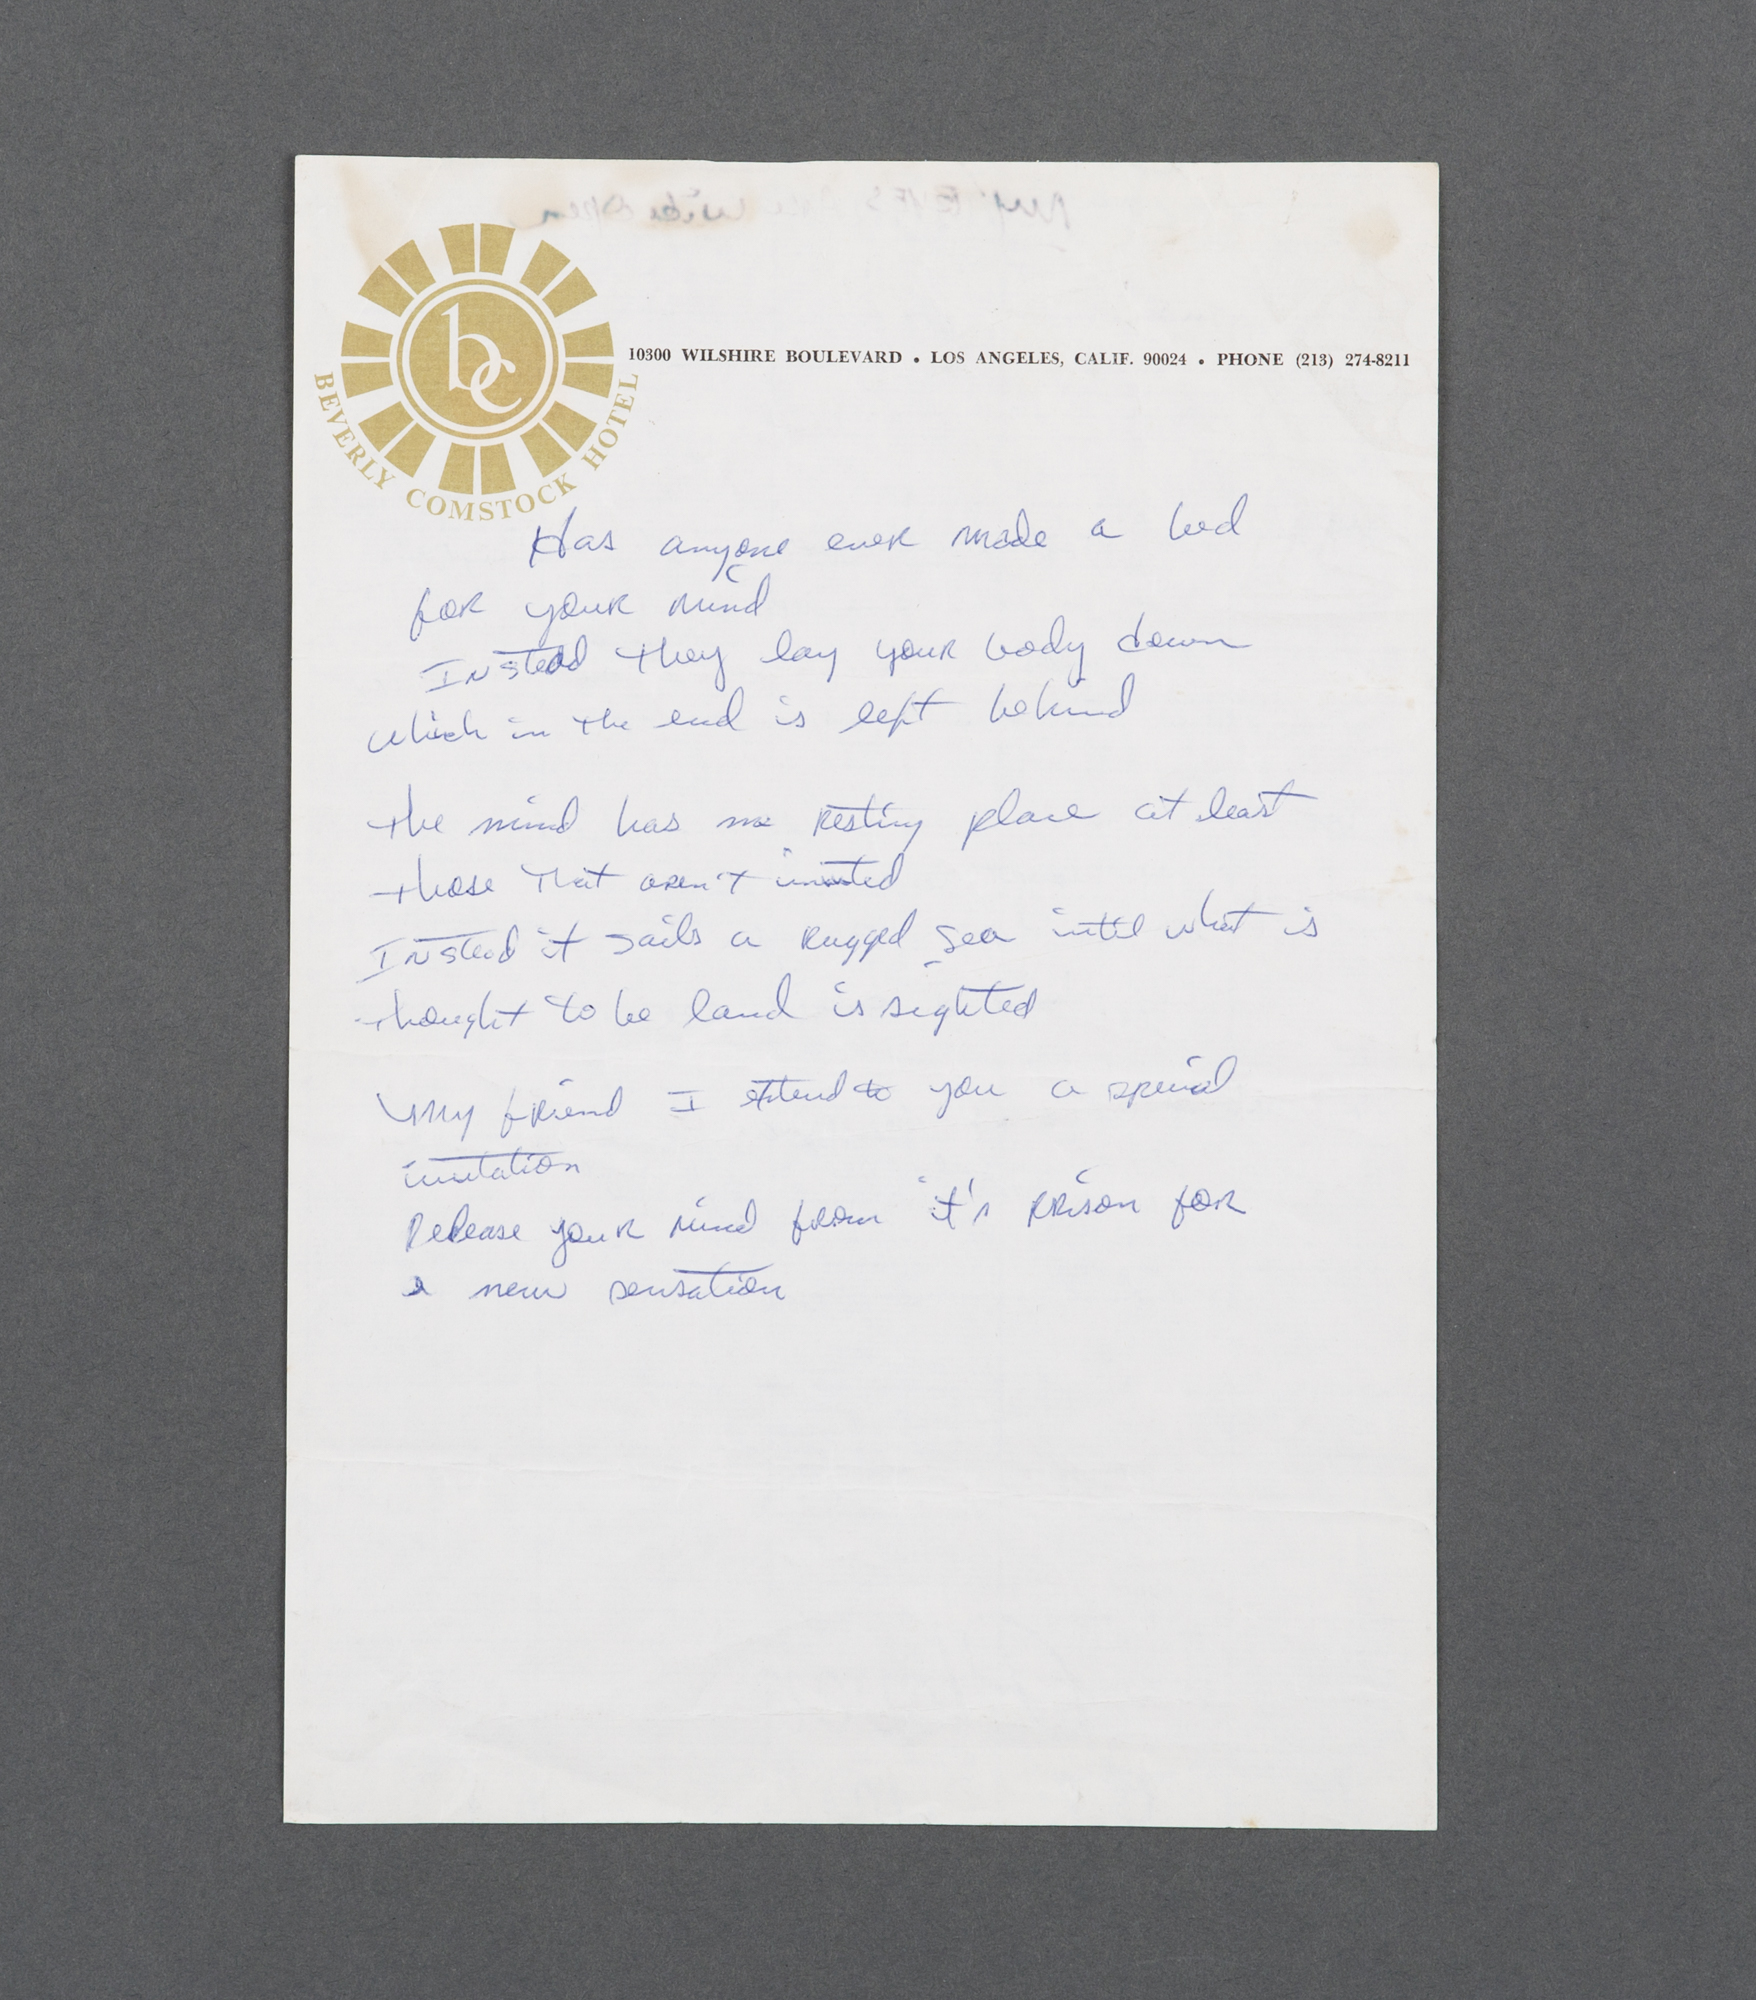 My EYES ARE Wide Open
bc
BEVERLY COMSTOCK HOTEL
10300 WILSHIRE BOULEVARD • LOS ANGELES, CALIF. 90024 • PHONE (213) 274-8211
Has anyone ever made a bed
for your mind
Instead they lay your body down
which in the end is left behind
the mind has no resting place at least
those that aren't invited
Instead it sails a rugged sea until what is
thought to be land is sighted
My friend I extend to you a special
invitation
Release your mind from it's prison for
a new sensation